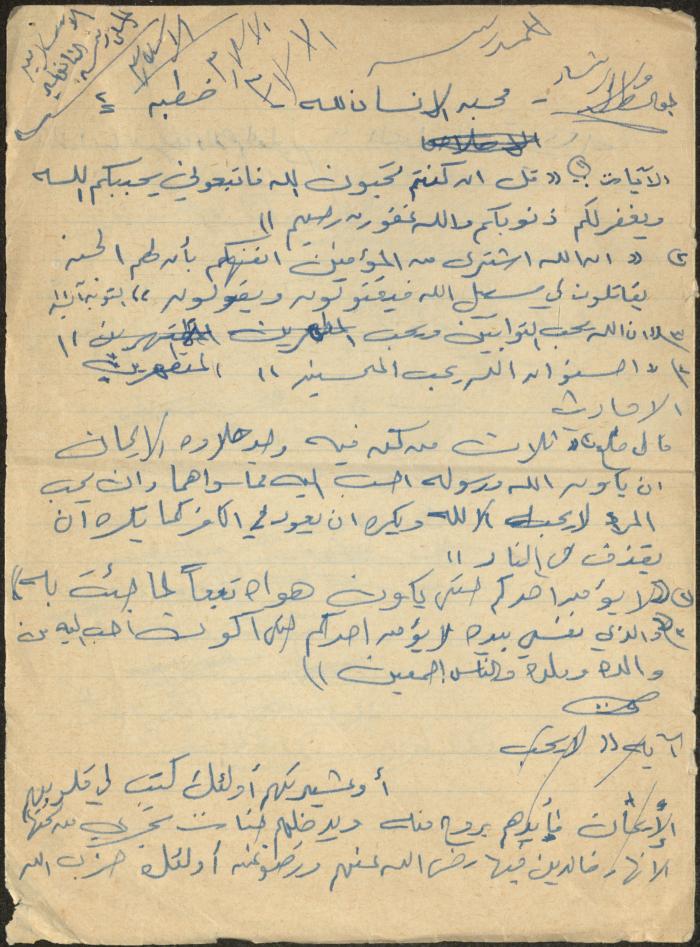 للمدرسة
محبة الانسان لله - خطبة
الآيات (١) « قل ان كنتم تحبون الله فاتبعوني يحببكم الله
ويغفر لكم ذنوبكم والله غفور رحيم »
٢) « ان الله اشترى من المؤمنين انفسهم بأن لهم الجنة
يقاتلون في سبيل الله فيقتلون ويقتلون » التوبة
٣) « ان الله يحب التوابين ويحب المتطهرين »
٤) « احسنوا ان الله يحب المحسنين » المتطهرين
الاحاديث
قال « ثلاث من كن فيه وجد حلاوة الإيمان
ان يكون الله ورسوله احب اليه مما سواهما وان يحب
المرء لا يحبه الا لله ويكره ان يعود في الكفر كما يكره أن
يقذف في النار »
٢) « لا يؤمن احدكم حتى يكون هواه تبعاً لما جئت به »
٣) « والذي نفسي بيده لا يؤمن احدكم حتى اكون احب اليه من
والده وولده والناس اجمعين »
آية « لا تجد
أو عشيرتهم أولئك كتب في قلوبهم
الإيمان وأيدهم بروح منه ويدخلهم جنات تجري من تحتها
الانهار خالدين فيها رضي الله عنهم ورضوا عنه أولئك حزب الله